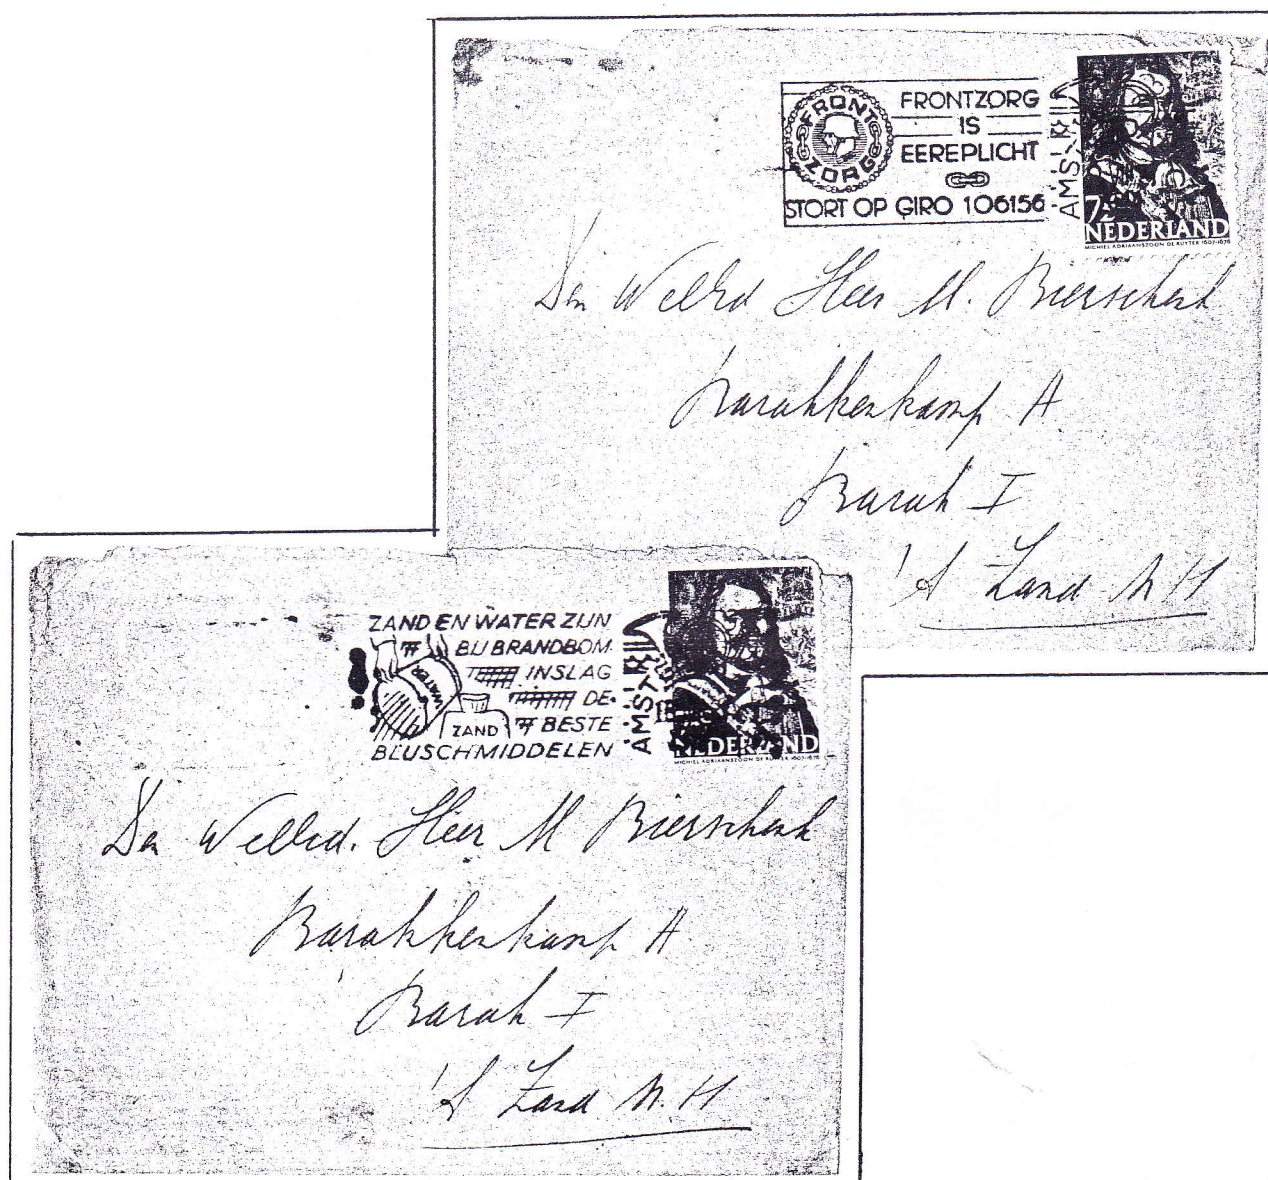 FRONT ZORG
FRONTZORG
IS
EEREPLICHT
STORT OP GIRO 106156
AMST
7½
NEDERLAND
MICHIEL ADRIAANSZOON DE RUYTER 1607-1676
Den WelEd Heer M. Bierschenk
Barakkenkamp A
Barak I
't Zand N H
ZAND EN WATER ZIJN
BIJ BRANDBOM
INSLAG
DE
BESTE
BLUSCHMIDDELEN
WATER
ZAND
AMST
NEDERLAND
MICHIEL ADRIAANSZOON DE RUYTER 1607-1676
Den WelEd. Heer M Bierschenk
Barakkenkamp A
Barak I
't Zand N. H